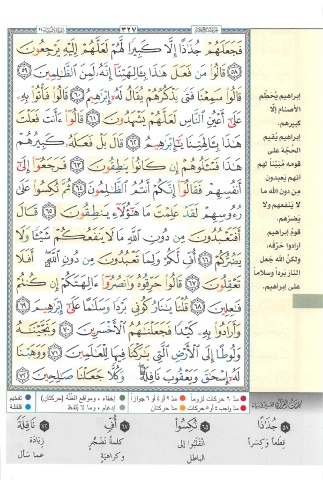 ٣٢٧
فَجَعَلَهُمْ جُذَٰذًا إِلَّا كَبِيرًا لَّهُمْ لَعَلَّهُمْ إِلَيْهِ يَرْجِعُونَ
٥٨ قَالُوا۟ مَن فَعَلَ هَٰذَا بِـَٔالِهَتِنَآ إِنَّهُۥ لَمِنَ ٱلظَّٰلِمِينَ ٥٩
قَالُوا۟ سَمِعْنَا فَتًى يَذْكُرُهُمْ يُقَالُ لَهُۥٓ إِبْرَٰهِيمُ ٦٠ قَالُوا۟ فَأْتُوا۟ بِهِۦ
عَلَىٰٓ أَعْيُنِ ٱلنَّاسِ لَعَلَّهُمْ يَشْهَدُونَ ٦١ قَالُوٓا۟ ءَأَنتَ فَعَلْتَ
هَٰذَا بِـَٔالِهَتِنَا يَٰٓإِبْرَٰهِيمُ ٦٢ قَالَ بَلْ فَعَلَهُۥ كَبِيرُهُمْ
هَٰذَا فَسْـَٔلُوهُمْ إِن كَانُوا۟ يَنطِقُونَ ٦٣ فَرَجَعُوٓا۟ إِلَىٰٓ
أَنفُسِهِمْ فَقَالُوٓا۟ إِنَّكُمْ أَنتُمُ ٱلظَّٰلِمُونَ ٦٤ ثُمَّ نُكِسُوا۟ عَلَىٰ
رُءُوسِهِمْ لَقَدْ عَلِمْتَ مَا هَٰٓؤُلَآءِ يَنطِقُونَ ٦٥ قَالَ
أَفَتَعْبُدُونَ مِن دُونِ ٱللَّهِ مَا لَا يَنفَعُكُمْ شَيْـًٔا وَلَا
يَضُرُّكُمْ ٦٦ أُفٍّ لَّكُمْ وَلِمَا تَعْبُدُونَ مِن دُونِ ٱللَّهِ أَفَلَا
تَعْقِلُونَ ٦٧ قَالُوا۟ حَرِّقُوهُ وَٱنصُرُوٓا۟ ءَالِهَتَكُمْ إِن كُنتُمْ
فَٰعِلِينَ ٦٨ قُلْنَا يَٰنَارُ كُونِى بَرْدًا وَسَلَٰمًا عَلَىٰٓ إِبْرَٰهِيمَ ٦٩
وَأَرَادُوا۟ بِهِۦ كَيْدًا فَجَعَلْنَٰهُمُ ٱلْأَخْسَرِينَ ٧٠ وَنَجَّيْنَٰهُ
وَلُوطًا إِلَى ٱلْأَرْضِ ٱلَّتِى بَٰرَكْنَا فِيهَا لِلْعَٰلَمِينَ ٧١ وَوَهَبْنَا
لَهُۥٓ إِسْحَٰقَ وَيَعْقُوبَ نَافِلَةً وَكُلًّا جَعَلْنَا صَٰلِحِينَ ٧٢
إبراهيم يُحطِّم
الأصنام إلَّا
كبيرهم.
إبراهيم يُقيم
الحُجّة على
قومه مُبيّناً لهم
أنهم يعبدون
مِن دون الله ما
لا ينفعهم ولا
يضرّهم.
قومُ إبراهيم
أرادوا حَرْقه،
ولكنَّ الله جعل
النار برداً وسلاماً
على إبراهيم.
مدّ ٦ حركات لزوماً مدّ ٢ أو ٤ أو ٦ جوازاً إخفاء، ومواقع الغُنَّة (حركتان) تفخيم
مدّ واجب ٤ أو ٥ حركات مدّ حركتان إدغام، وما لا يُلفظ قلقلة
٥٨ جُذَاذًا
قِطعاً وكِسَراً
٦٥ نُكِسُوا
انقلبوا إلى
الباطل
٦٧ أُفٍّ
كلمةُ تَضَجُّرٍ
وكراهية
٧٢ نَافِلَةً
زيادة
عما سأل